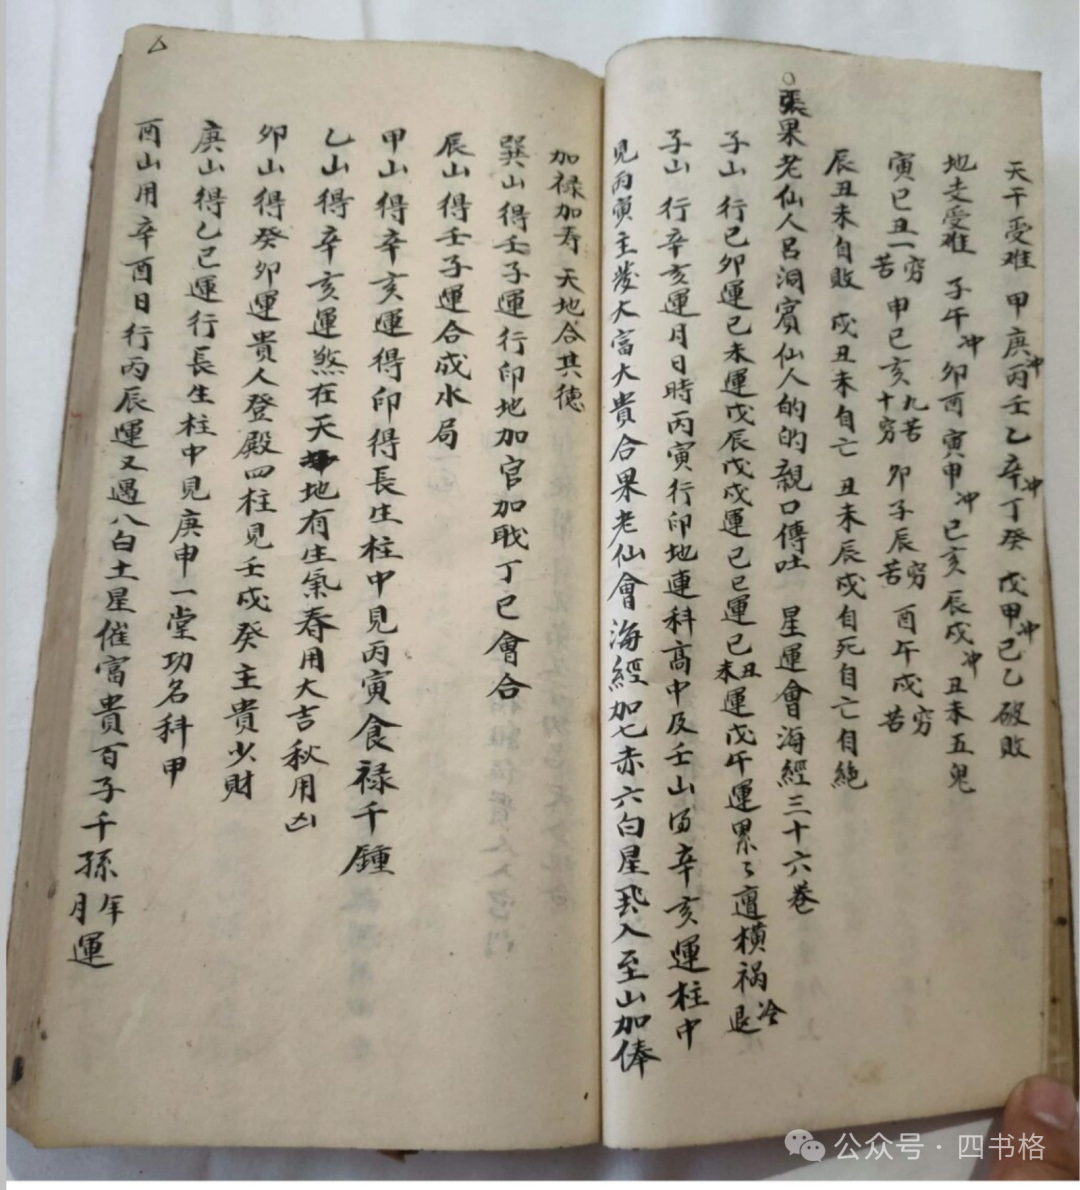 天干受难 甲庚冲丙壬乙辛冲丁癸 戊甲冲己乙破敗
地支受难 子午冲 卯酉 寅甲冲 巳亥 辰戌冲 丑未五鬼
寅巳丑一穷苦 申巳亥九苦十穷 卯子辰穷苦 酉午戌穷苦
辰丑未自敗 戌丑未自亡 丑未辰戌自死自亡自絶
○張果老仙人呂洞賓仙人的的親口傳吐 星運會海經三十六卷
子山 行己卯運己未運戊辰戊戌運己巳運己丑未運戊午運累々遭横祸冷退
子山 行辛亥運月日時丙寅行印地連科高中及壬山 辛亥運柱中
見丙寅主發大富大貴合果老仙會海經加七赤六白星飛入至山加俸
加禄加寿 天地合其德
巽山得壬子運行印地加官加戝丁巳會合
辰山得壬子運合成水局
甲山得辛亥運得印得長生柱中見丙寅食禄千鍾
乙山得辛亥運煞在天地有生氣春用大吉秋用凶
卯山得癸卯運貴人登殿四柱見壬戌癸主貴少財
庚山得乙巳運行長生柱中見庚申一堂功名科甲
酉山用辛酉日行丙辰運又遇八白土星催富貴百子千孫年月運
公众号·四书格